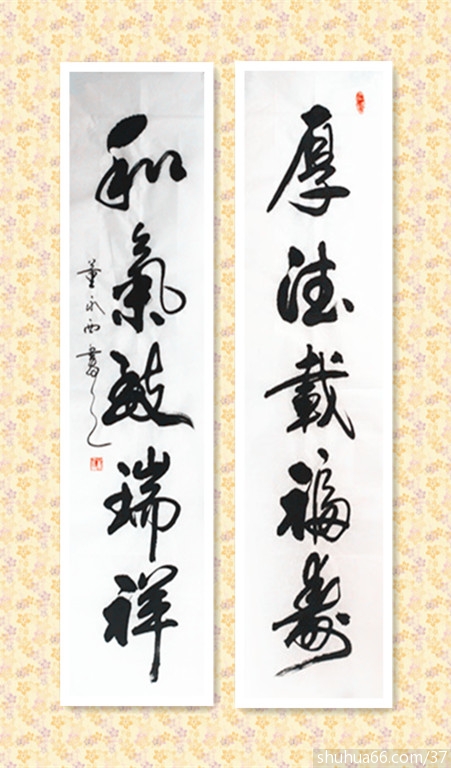 厚德載福壽
和氣致瑞祥
董永西書
shuhua66.com/37